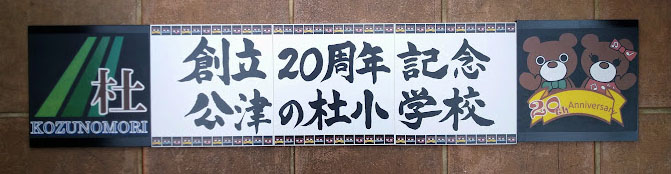 杜
KOZUNOMORI
創立20周年記念
公津の杜小学校
20th Anniversary